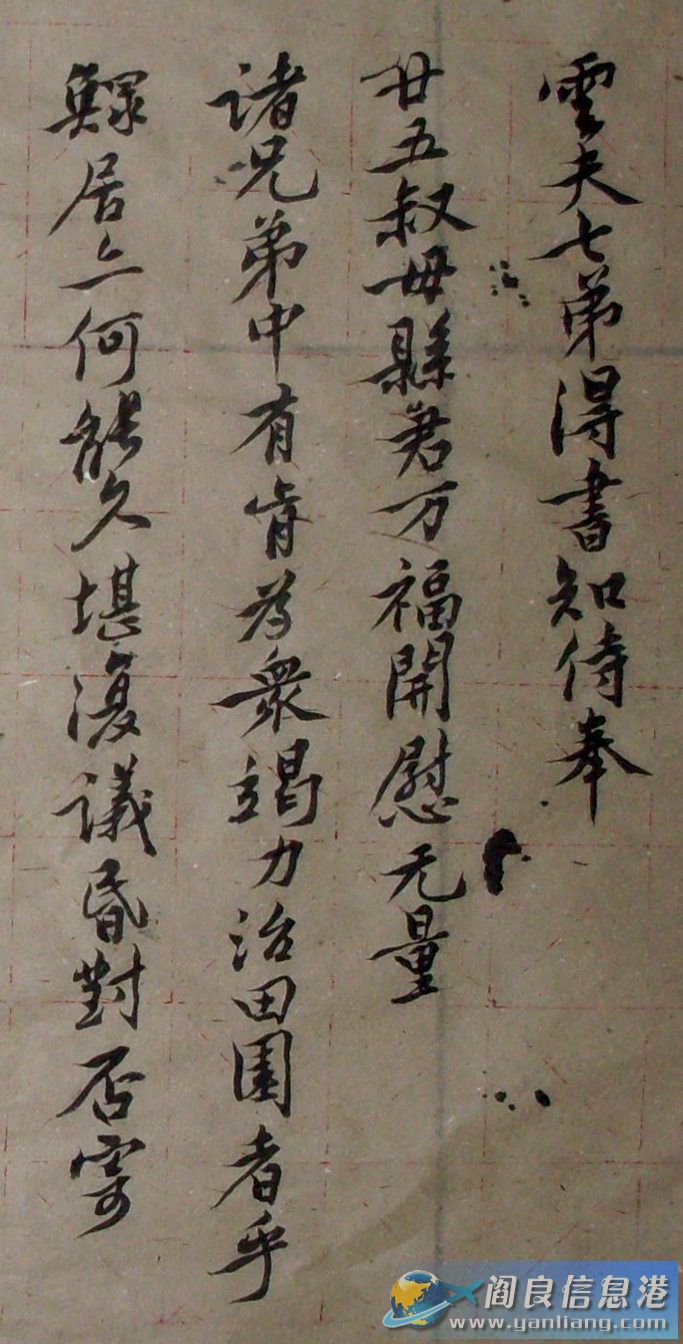 雲夫七弟得書知侍奉
廿五叔母縣君万福開慰无量
諸兄弟中有肯為衆竭力治田園者乎
鰥居亦何能久堪復議昏對否寄
阎良信息港
www.yanliang.com